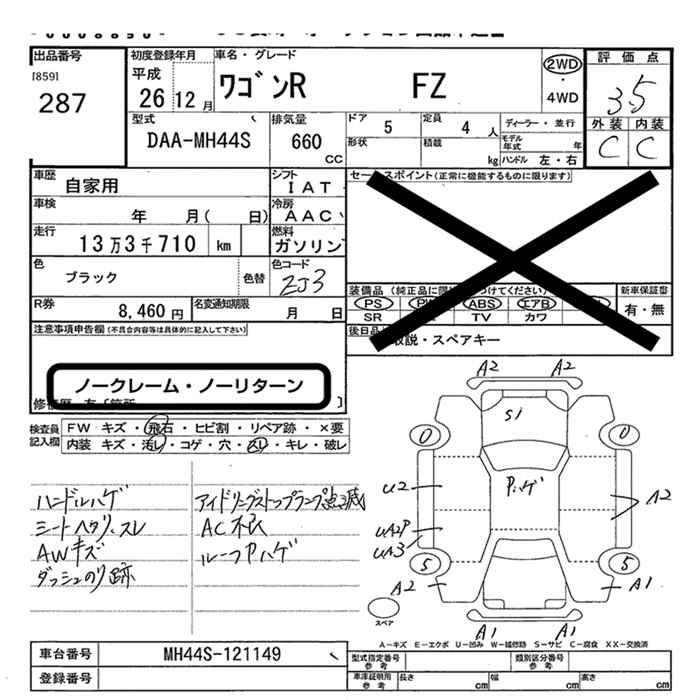 出品番号 初度登録年月 車名・グレード 2WD 評価点
[859] 平成 ワゴンR FZ ・ 35
287 26 12月 4WD 外装 内装
型式 排気量 ドア 定員 ディーラー・並行 C C
DAA-MH44S 660 CC 5 4人 モデル年式 年
形状 積載 kg ハンドル 左・右
車歴 自家用 シフト IAT セールスポイント(正常に機能するものに限ります)
車検 年 月( 日) 冷房 AAC
走行 13万3千710 km 燃料 ガソリン
色 ブラック 色替 色コード ZJ3 装備品(純正品に限 つけてください) 新車保証書
R券 8,460円 名変通知期限 月 日 PS ABS エアB 有・無
SR TV カワ
注意事項申告欄(不具合内容等は具体的に記入して下さい) 後日品 取説・スペアキー
ノークレーム・ノーリターン
検査員記入欄 FW キズ・飛石・ヒビ割・リペア跡・×要
内装 キズ・汚レ・コゲ・穴・スレ・キレ・破レ
ハンドルハゲ アイドリングストップランプ点滅
シートヘタリ、スレ AC不良
AWキズ ルーフPハゲ
ダッシュのり跡
A2 A2
S1
0 0
U2 Pハゲ A2
UA2P
UA3
5 5
A2 A1
スペア A1 A1
A-キズ E-エクボ U-凹み W-補修跡 S-サビ C-腐食 XX-交換済
車台番号 MH44S-121149 型式指定番号参考 類別区分番号参考
登録番号 車庫証明用参考 長さ cm 幅 cm 高さ cm